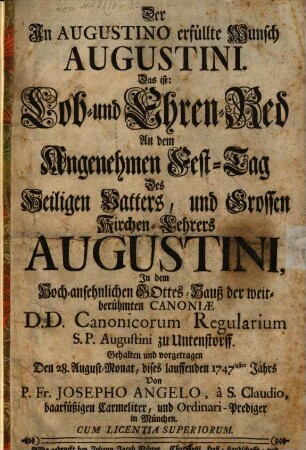 Der
In AUGUSTINO erfüllte Wunsch
AUGUSTINI.
Das ist:
Lob- und Ehren-Red
An dem
Angenehmen Fest-Tag
Des
Heiligen Vatters, und Grossen
Kirchen-Lehrers
AUGUSTINI,
In dem
Hoch-ansehnlichen GOttes-Hauß der weit-
berühmten CANONIÆ
D.D. Canonicorum Regularium
S. P. Augustini zu Untenstorff.
Gehalten und vorgetragen
Den 28. August-Monat, dises lauffenden 1747isten Jahrs
Von
P. Fr. JOSEPHO ANGELO, à S. Claudio,
baarfüßigen Carmeliter, und Ordinari-Prediger
in München.
CUM LICENTIA SUPERIORUM.
gedruckt bey Johann Jacob